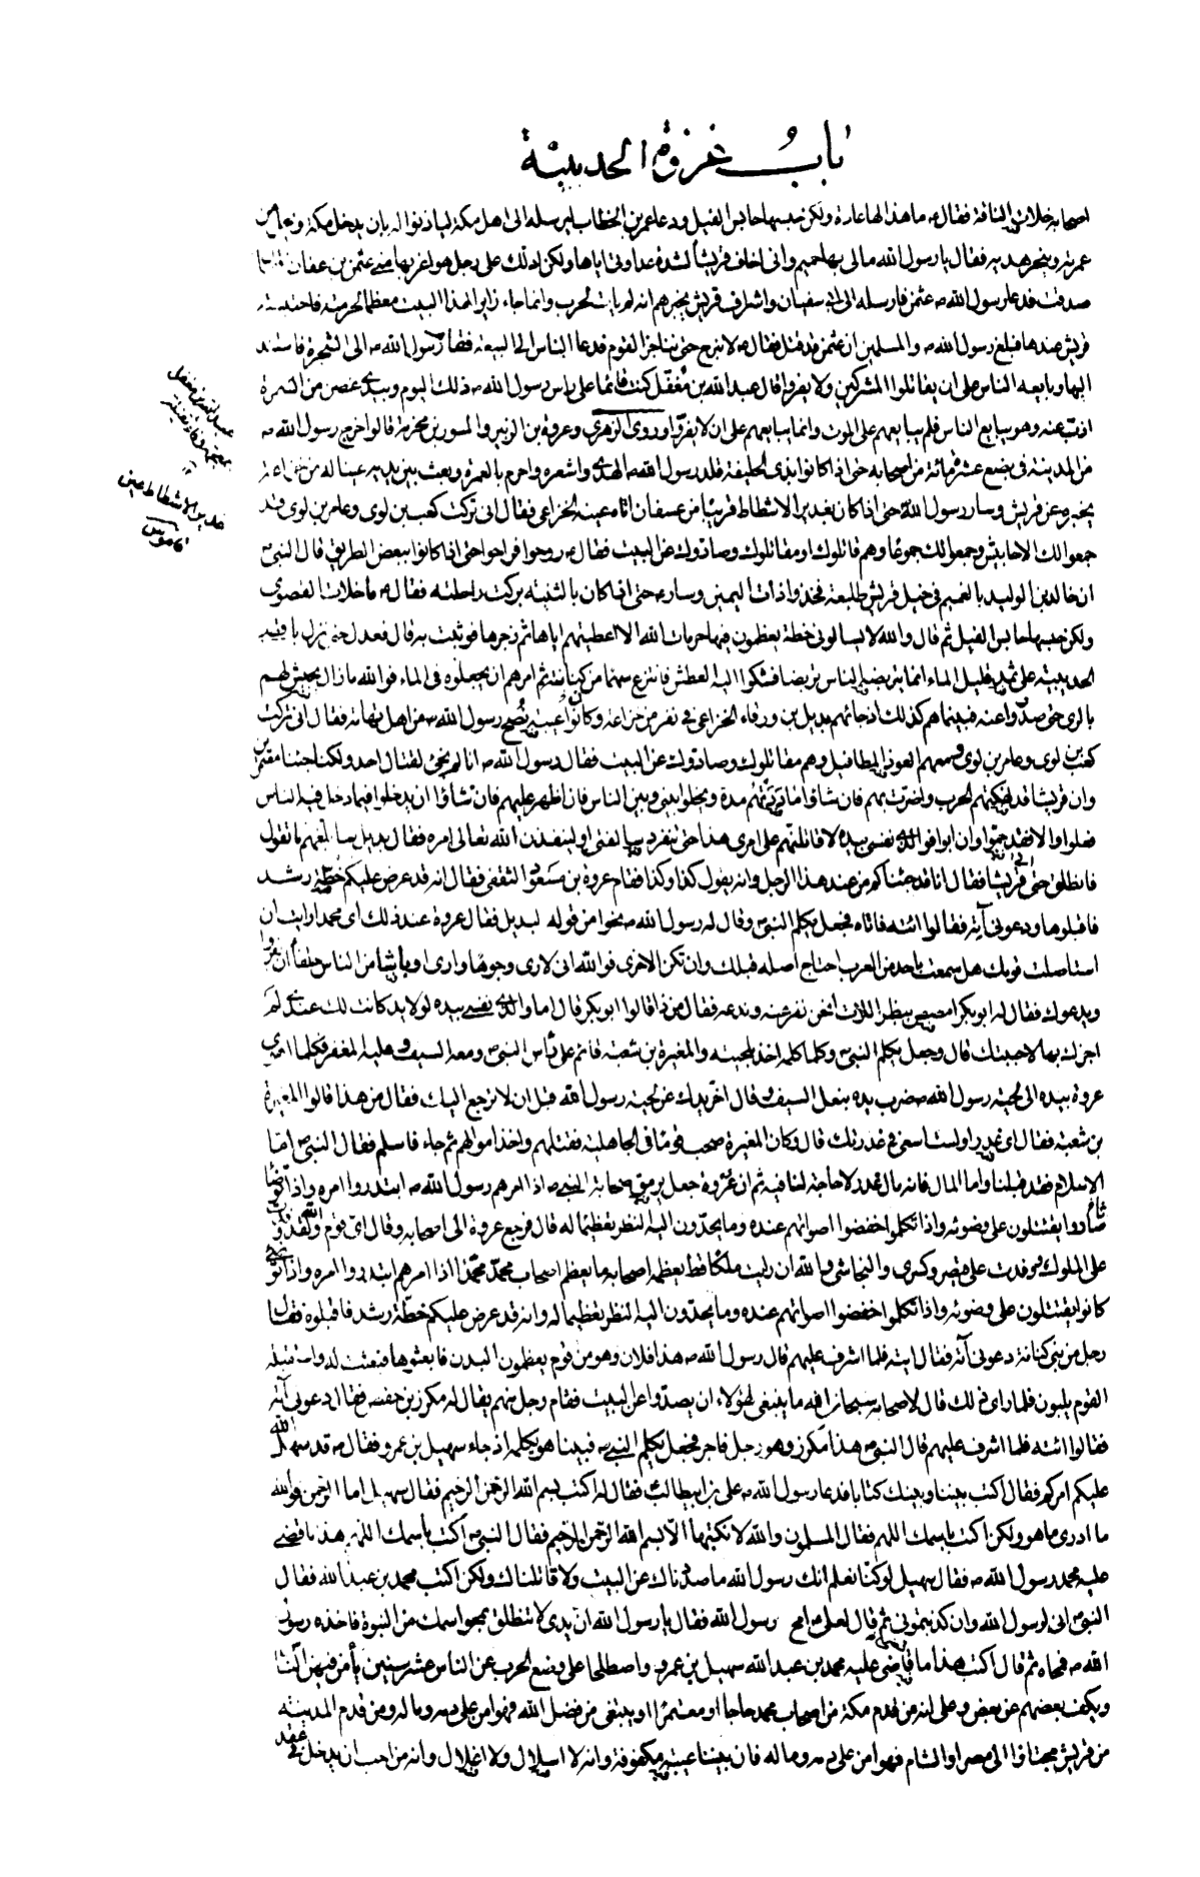 باب غزوة الحديبية
اصحابه خلات الناقة فقال ص ما هذا لها عادة ولكن حبسها حابس الفيل ودعا عمر بن الخطاب ليرسله الى اهل مكة لياذنوا له بان يدخل مكة ويحل من
عمرته وينحر هديه فقال يا رسول الله مالى بها حميم وانى اخاف قريشا لشدة عداوتى اياها ولكن ادلك على رجل هو اعز بها منى عثمن بن عفان فقال
صدقت فدعا رسول الله ص عثمن فارسله الى ابى سفيان واشراف قريش يخبرهم انه لم يات لحرب وانما جاء زايرا لهذا البيت معظما لحرمته فاحتبسته
قريش عندها فبلغ رسول الله ص والمسلمين ان عثمن قد قتل فقال ص لا نبرح حتى نناجز القوم فدعا الناس الى البيعة فقام رسول الله ص الى الشجرة فاستند
اليها وبايعه الناس على ان يقاتلوا المشركين ولا يفروا قال عبد الله بن مغفل كنت قائما على راس رسول الله ص ذلك اليوم وبيدى غصن من السمرة
اذب عنه وهو يبايع الناس فلم يبايعهم على الموت وانما بايعهم على ان لا يفروا وروى الزهرى وعروة بن الزبير والمسور بن مخرمة قالوا خرج رسول الله ص
من المدينة فى بضع عشرة مائة من اصحابه حتى اذا كانوا بذى الحليفة قلد رسول الله ص الهدى واشعره واحرم بالعمرة وبعث بين يديه عينا له من خزاعة
يخبره عن قريش وسار رسول الله حتى اذا كان بغدير الاشطاط قريبا من عسفان اتاه عينه الخزاعى فقال انى تركت كعب بن لوى وعامر بن لوى قد
جمعوا لك الاحابيش وجمعوا لك جموعا وهم قاتلوك او مقاتلوك وصادوك عن البيت فقال ص روحوا فراحوا حتى اذا كانوا ببعض الطريق قال النبى ص
ان خالد بن الوليد بالغميم فى خيل قريش طليعة فخذوا ذات اليمين وسار ص حتى اذا كان بالثنية بركت راحلته فقال ص ما خلات القصوى
ولكن حبسها حابس الفيل ثم قال والله لا يسالونى خطة يعظمون فيها حرمات الله الا اعطيتهم اياها ثم زجرها فوثبت به قال فعدل حتى نزل باقصى
الحديبية على ثمد قليل الماء انما يتربضه الناس تربضا فشكوا اليه العطش فانتزع سهما من كنانته ثم امرهم ان يجعلوه فى الماء فوالله ما زال يجيش لهم
بالرى حتى صدروا عنه فبينما هم كذلك اذ جائهم بديل بن ورقاء الخزاعى فى نفر من خزاعة وكانوا عيبة نصح رسول الله ص من اهل تهامة فقال انى تركت
كعب بن لوى وعامر بن لوى ومعهم العوذ المطافيل وهم مقاتلوك وصادوك عن البيت فقال رسول الله ص انا لم نجئ لقتال احد ولكنا جئنا معتمرين
وان قريشا قد نهكتهم الحرب واضرت بهم فان شاؤا ماددتهم مدة ويخلوا بينى وبين الناس فان اظهر عليهم فان شاؤا ان يدخلوا فيما دخل فيه الناس
فعلوا والا فقد جموا وان ابوا فوالذى نفسى بيده لاقاتلنهم على امرى هذا حتى تنفرد سالفتى او لينفذن الله تعالى امره فقال بديل سابلغهم ما تقول
فانطلق حتى اتى قريشا فقال انا قد جئناكم من عند هذا الرجل وانه يقول كذا وكذا فقام عروة بن مسعود الثقفى فقال انه قد عرض عليكم خطة رشد
فاقبلوها ودعونى آته فقالوا ائته فاتاه فجعل يكلم النبى ص وقال له رسول الله ص نحوا من قوله لبديل فقال عروة عند ذلك اى محمد ارايت ان
استاصلت قومك هل سمعت باحد من العرب اجتاح اصله قبلك وان تكن الاخرى فوالله انى لارى وجوها وارى اوباشا من الناس خلقا ان يفروا
ويدعوك فقال له ابو بكر امصص بظر اللات انحن نفر عنه وندعه فقال من ذا قالوا ابو بكر قال اما والذى نفسى بيده لولا يد كانت لك عندى لم
اجزك بها لاجبتك قال وجعل يكلم النبى ص وكلما كلمه اخذ بلحيته والمغيرة بن شعبة قائم على راس النبى ص ومعه السيف وعليه المغفر فكلما اهوى
عروة بيده الى لحية رسول الله ص ضرب يده بنعل السيف وقال اخر يدك عن لحية رسول الله قبل ان لا ترجع اليك فقال من هذا قالوا المغيرة
بن شعبة فقال اى غدر اولست اسعى فى غدرتك قال وكان المغيرة صحب قوما فى الجاهلية فقتلهم واخذ اموالهم ثم جاء فاسلم فقال النبى ص اما
الاسلام فقد قبلنا واما المال فانه مال غدر لا حاجة لنا فيه ثم ان عروة جعل يرمق صحابة النبى ص اذا امرهم رسول الله ص ابتدروا امره واذا توضا
ثاروا يقتتلون على وضوئه واذا تكلموا خفضوا اصواتهم عنده وما يحدون اليه النظر تعظيما له قال فرجع عروة الى اصحابه وقال اى قوم والله لقد وفدت
على الملوك ووفدت على قيصر وكسرى والنجاشى والله ان رايت ملكا قط يعظمه اصحابه ما يعظم اصحاب محمد محمدا اذا امرهم ابتدروا امره واذا توضا
كانوا يقتتلون على وضوئه واذا تكلموا خفضوا اصواتهم عنده وما يحدون اليه النظر تعظيما له وانه قد عرض عليكم خطة رشد فاقبلوه فقال
رجل من بنى كنانة دعونى آته فقال ائته فلما اشرف عليهم قال رسول الله ص هذا فلان وهو من قوم يعظمون البدن فابعثوها فبعثت له واستقبله
القوم يلبون فلما راى ذلك قال لاصحابه سبحان الله ما ينبغى لهؤلاء ان يصدوا عن البيت فقام رجل منهم يقال له مكرز بن حفص فقال دعونى آته
فقالوا ائته فلما اشرف عليهم قال النبى ص هذا مكرز وهو رجل فاجر فجعل يكلم النبى ص فبينا هو يكلمه اذ جاء سهيل بن عمرو فقال ص قد سهل الله
عليكم امركم فقال اكتب بيننا وبينك كتابا فدعا رسول الله ص على بن ابيطالب فقال له اكتب بسم الله الرحمن الرحيم فقال سهيل اما الرحمن فوالله
ما ادرى ما هو ولكن اكتب باسمك اللهم فقال المسلمون والله لا نكتبها الا بسم الله الرحمن الرحيم فقال النبى ص اكتب باسمك اللهم هذا ما قضى
عليه محمد رسول الله ص فقال سهيل لو كنا نعلم انك رسول الله ما صددناك عن البيت ولا قاتلناك ولكن اكتب محمد بن عبد الله فقال
النبى ص انى لرسول الله وان كذبتمونى ثم قال لعلى ع امح رسول الله فقال يا رسول الله ان يدى لا تنطلق بمحو اسمك من النبوة فاخذه رسول
الله ص فمحاه ثم قال اكتب هذا ما قاضى عليه محمد بن عبد الله سهيل بن عمرو واصطلحا على وضع الحرب عن الناس عشر سنين يأمن فيهن الناس
ويكف بعضهم عن بعض وعلى انه من قدم مكة من اصحاب محمد حاجا او معتمرا او يبتغى من فضل الله فهو امن على دمه وماله ومن قدم المدينة
من قريش مجتازا الى مصر او الشام فهو امن على دمه وماله فان بيننا عيبة مكفوفة وانه لا اسلال ولا اغلال وانه من احب ان يدخل فى عقد
غدير الاشطاط عين
قاموس